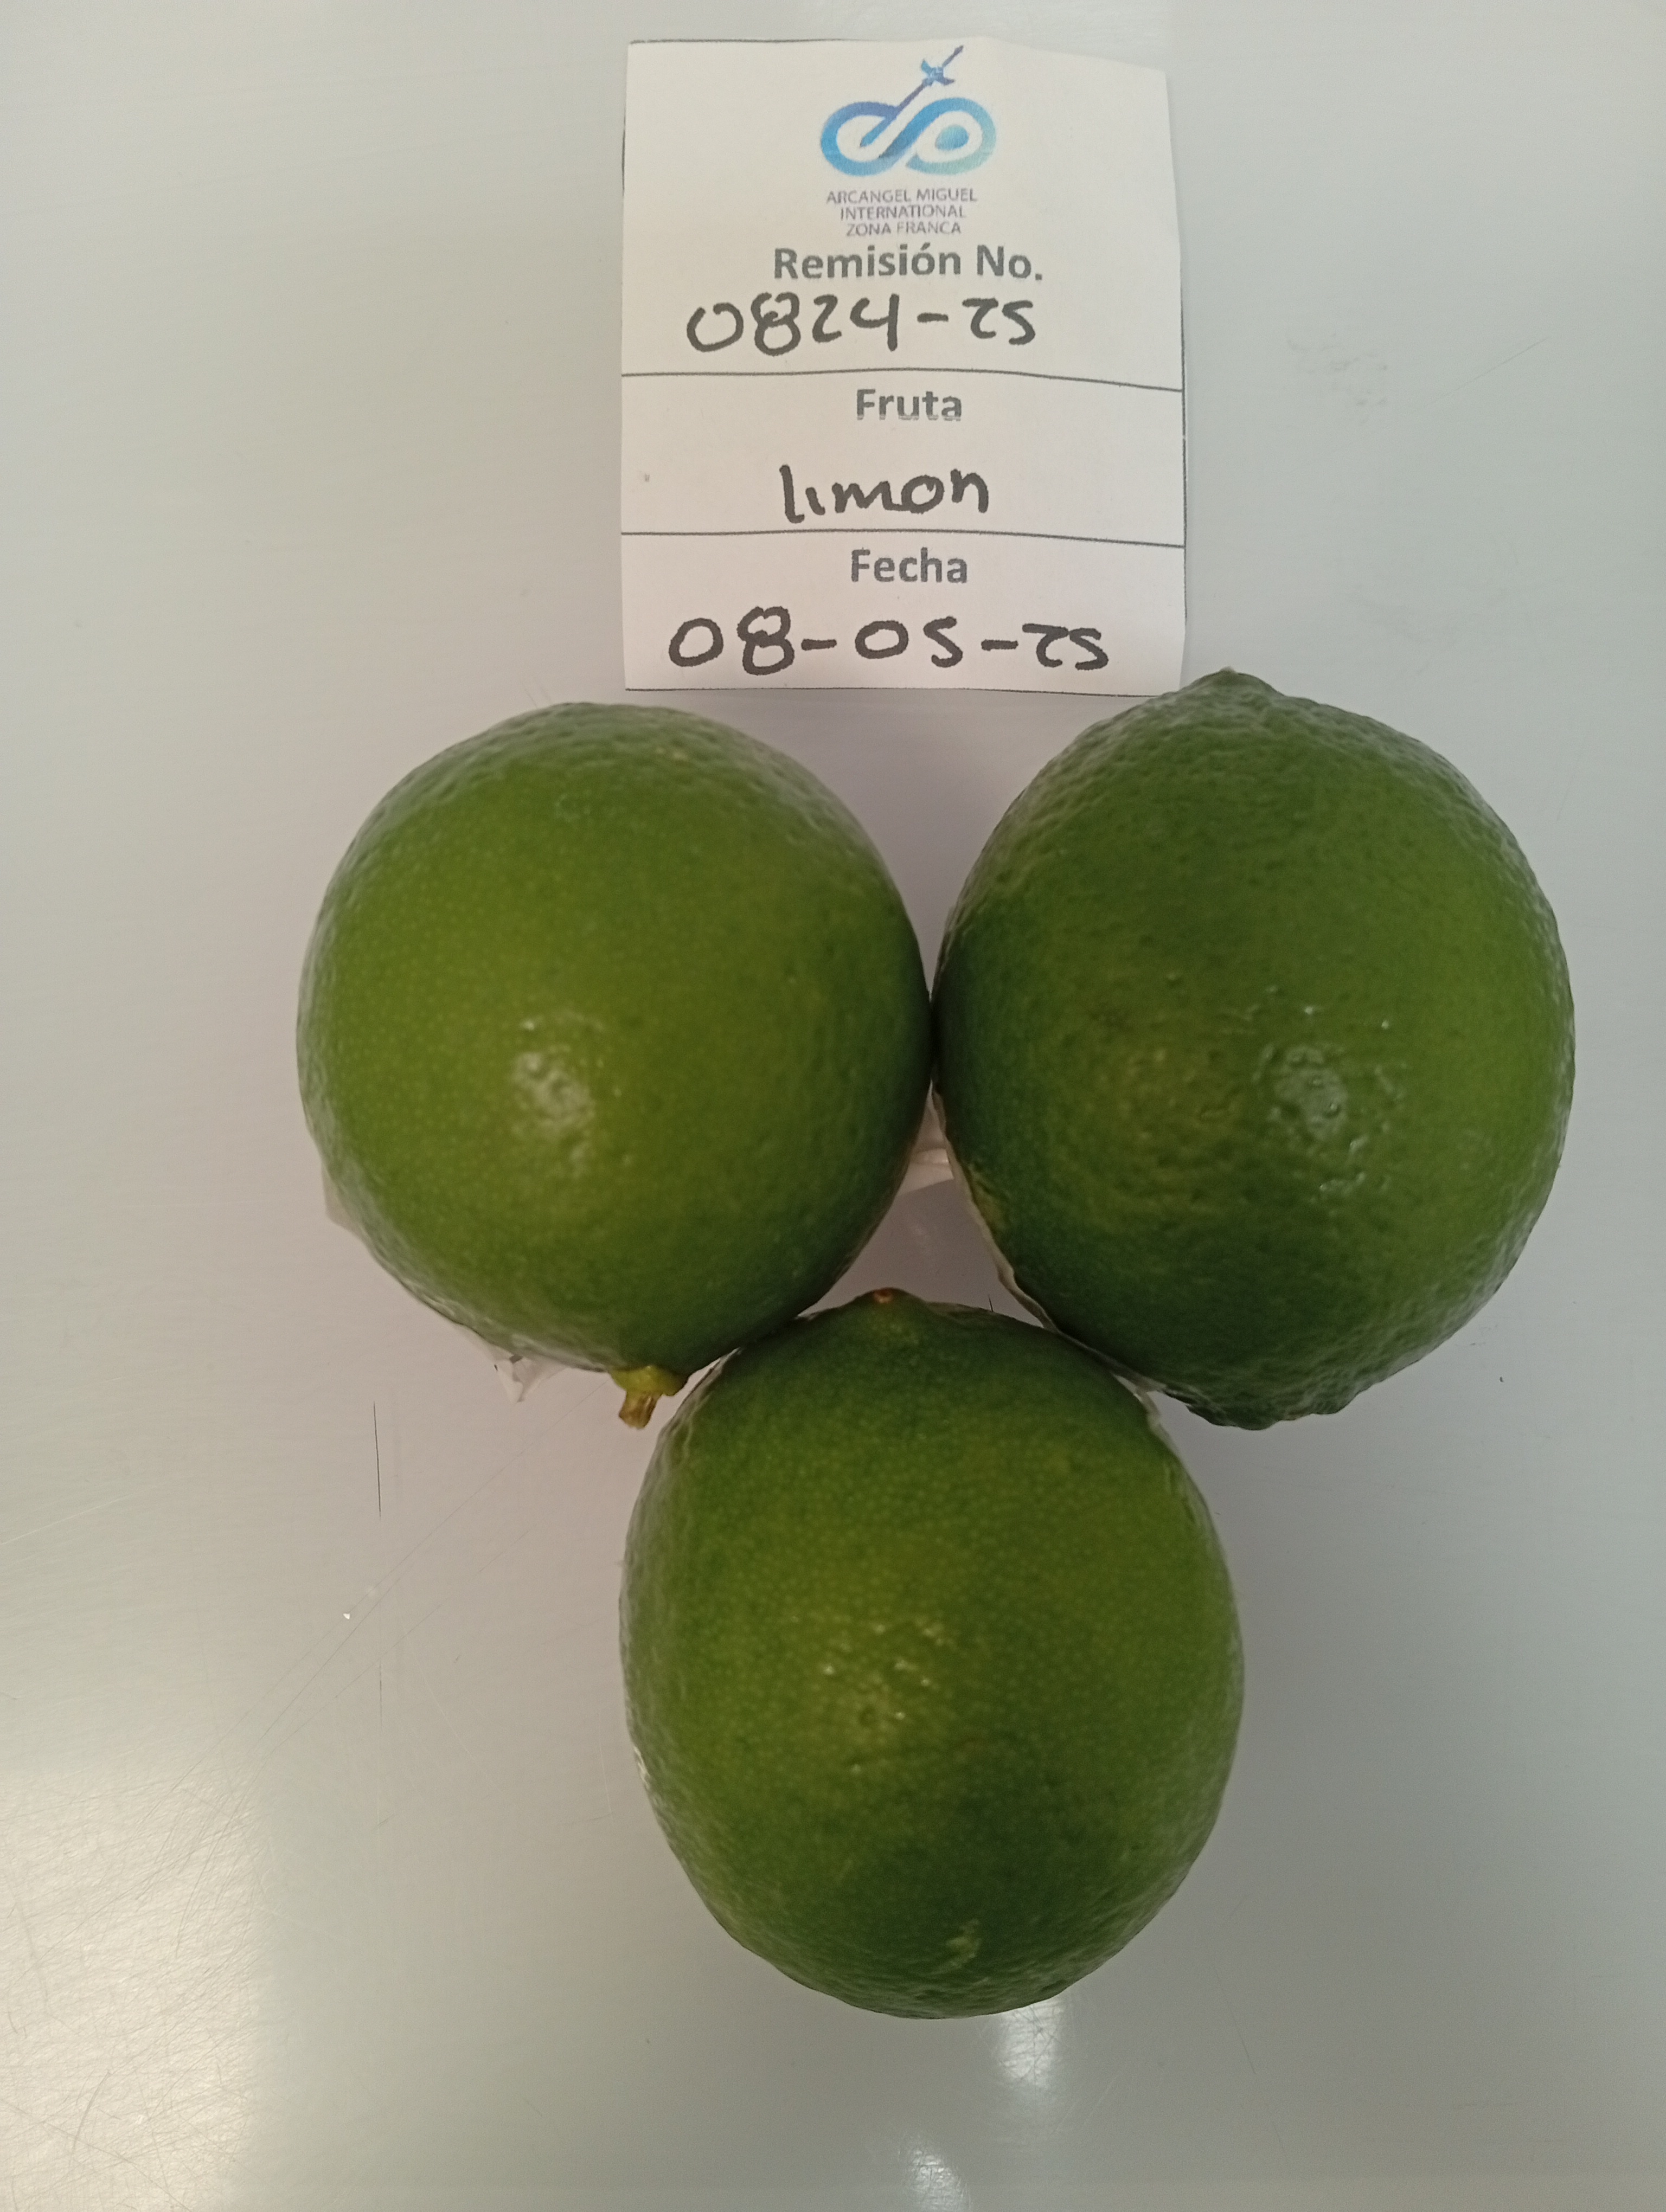 ARCANGEL MIGUEL
INTERNATIONAL
ZONA FRANCA
Remisión No.
0824-25
Fruta
limon
Fecha
08-05-25